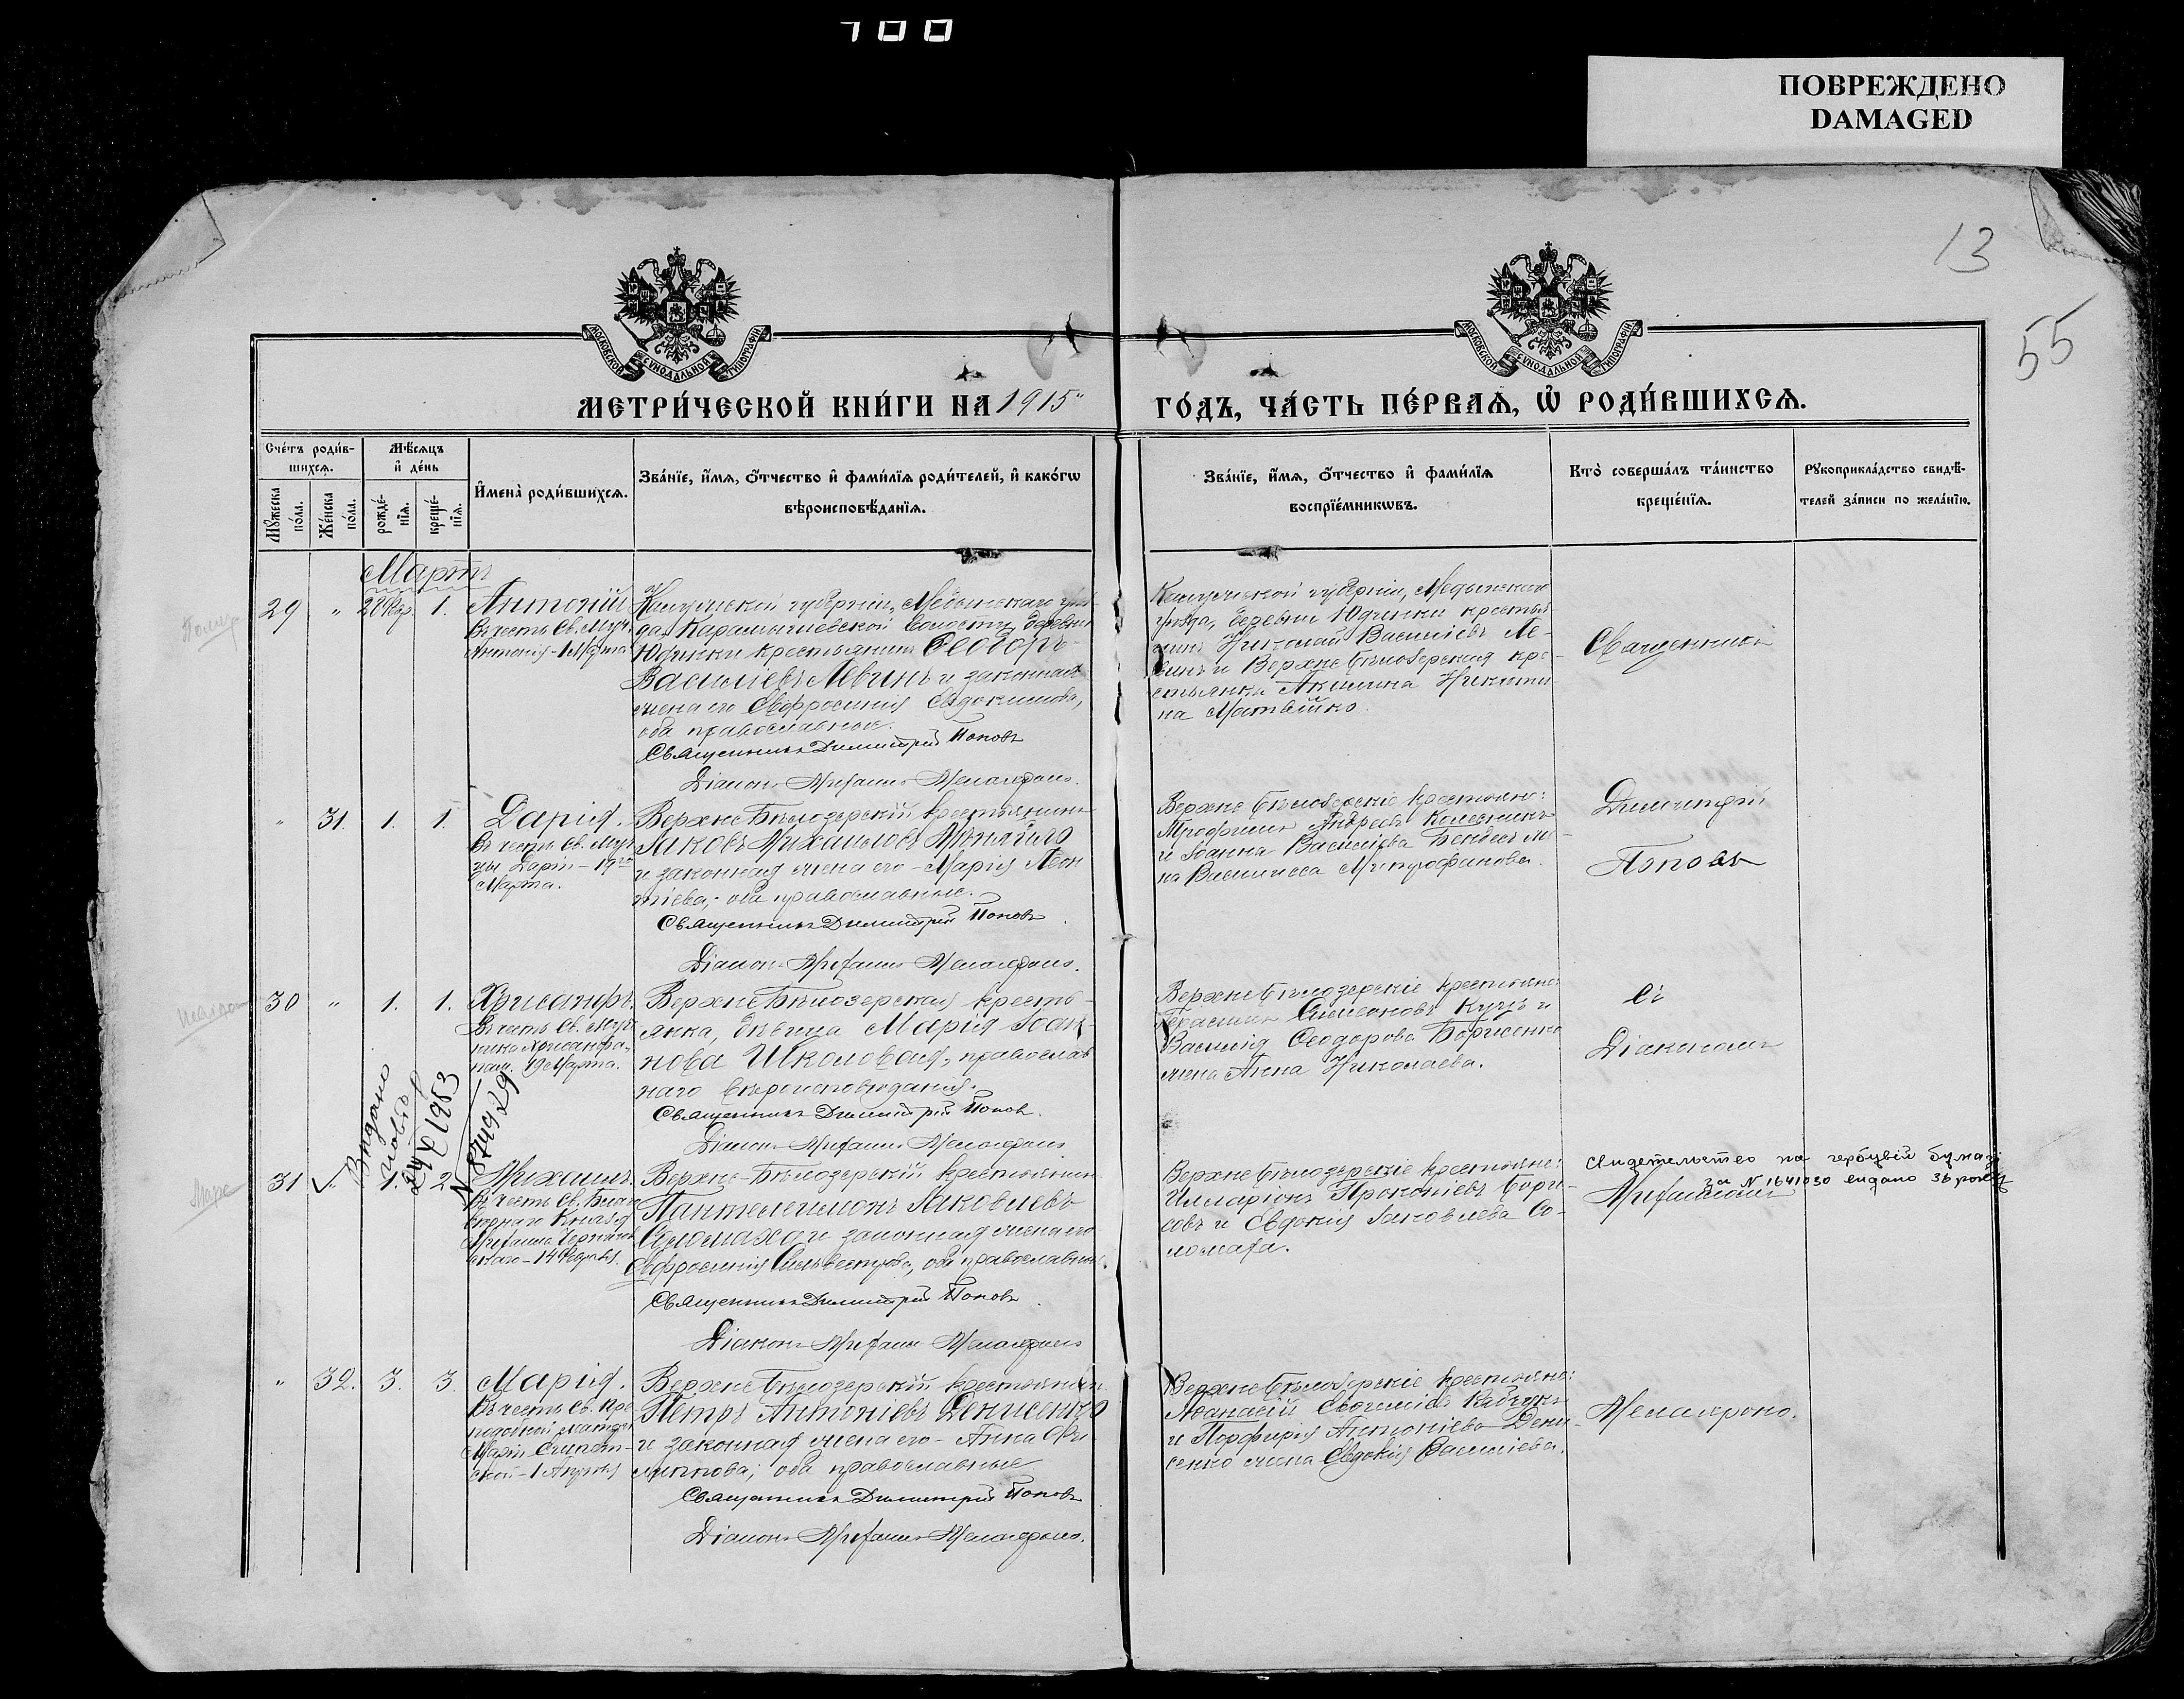 100
ПОВРЕЖДЕНО
DAMAGED
13
55
МОСКОВСКОЙ СѴНОДАЛЬНОЙ ТИПОГРАФІИ
МОСКОВСКОЙ СѴНОДАЛЬНОЙ ТИПОГРАФІИ
МЕТРИ́ЧЕСКОЙ КНИ́ГИ НА 1915
ГО́ДЪ, ЧА́СТЬ ПЕ́РВАѦ, Ѡ РОДИ́ВШИХСѦ.
Сче́тъ роди́в-
шихсѧ.
Мꙋжеска по́ла.
Же́нска по́ла.
Мѣ́сѧцъ
и҆ де́нь
рожде́-
нїѧ.
креще́-
нїѧ.
И҆мена̀ роди́вшихсѧ.
Зва́нїе, и҆́мѧ, ѻ҆́тчество и҆ фами́лїѧ роди́телей, и҆ како́гѡ
вѣроисповѣ́данїѧ.
Зва́нїе, и҆́мѧ, ѻ҆́тчество и҆ фами́лїѧ
воспрїе́мникѡвъ.
Кто̀ соверша́лъ та́инство
креще́нїѧ.
Рꙋкоприкла́дство свидѣ́-
телей за́писи по жела́нїю.
Мартъ
29 " 28 1. Антоній
Въ честь Св. Муч.
Антонія - 1 Марта
Калужской губерніи, Медынскаго уѣз-
да, Карамышевской волости, деревни
Юдинки крестьянинъ Ѳеодоръ
Васильевъ Левинъ и законная
жена его Евфросинія Евдокимова,
оба православные.
Священникъ Димитрій Поповъ
Діаконъ
Калужской губерніи, Медынскаго
уѣзда, деревни Юдинки крестья-
нинъ Николай Васильевъ Ле-
винъ и Верхнебѣлозерская кре-
стьянка Акилина Никити-
на Матвійко.
Священникъ
" 31. 1. 1. Дарія.
Въ честь Св. Муч-
цы Дарiи - 19го
Марта.
Верхне-Бѣлозерскій крестьянинъ
Іаковъ Михаиловъ
и законная жена его - Марія Леон-
тіева; оба православные.
Священникъ Димитрій Поповъ
Діаконъ
Верхне-Бѣлозерскіе крестьяне:
Трофимъ Андреевъ Колесникъ
и Іоанна Васильева же-
на Василисса Митрофанова.
Димитрій
Поповъ
30 " 1. 1. Хрисанфъ.
Въ честь Св. Муче-
ника Хрисанфа,
пам. 19 Марта.
Верхне-Бѣлозерская кресть-
янка, дѣвица Марія Іоан-
нова Школовая, православ-
наго вѣроисповѣданія.
Священникъ Димитрій Поповъ.
Діаконъ
Верхне-Бѣлозерскіе крестьяне:
Герасимъ Симеоновъ Куцъ и
Василія Ѳеодорова Борисенко
жена Анна Николаева.
съ
Діакономъ
Видано
повтор
24/X 1953
N 874929
31 " 1. 2. Михаилъ.
Въ честь Св. Благо-
вѣрнаго Князя
Михаила Чернигов-
скаго - 14 Февраля.
Верхне-Бѣлозерскій крестьянинъ
Пантелеимонъ Іаковлевъ
Соломаха и законная жена его
Евфросинія Сильвестрова, оба православные.
Священникъ Димитрій Поповъ
Діаконъ
Верхне-Бѣлозерскіе крестьяне:
Илларіонъ Прокопіевъ Бори-
совъ и Евдокія Іаковлева Со-
ломаха.
на гербовій бумазі
за N 1641030 видано 36 року
32. 3. 3. Марія.
Въ честь Св. Пре-
подобной матери
Маріи Египет-
ской - 1 Апрѣля
Верхне-Бѣлозерскій крестьянинъ
Петръ Антоніевъ Денисенко
и законная жена его - Анна Фи-
липпова; оба православные
Священникъ Димитрій Поповъ
Діаконъ
Верхне-Бѣлозерскіе крестьяне:
Аѳанасій
и Порфирія Антоніева Дени-
сенко жена Евдокія Васильева.